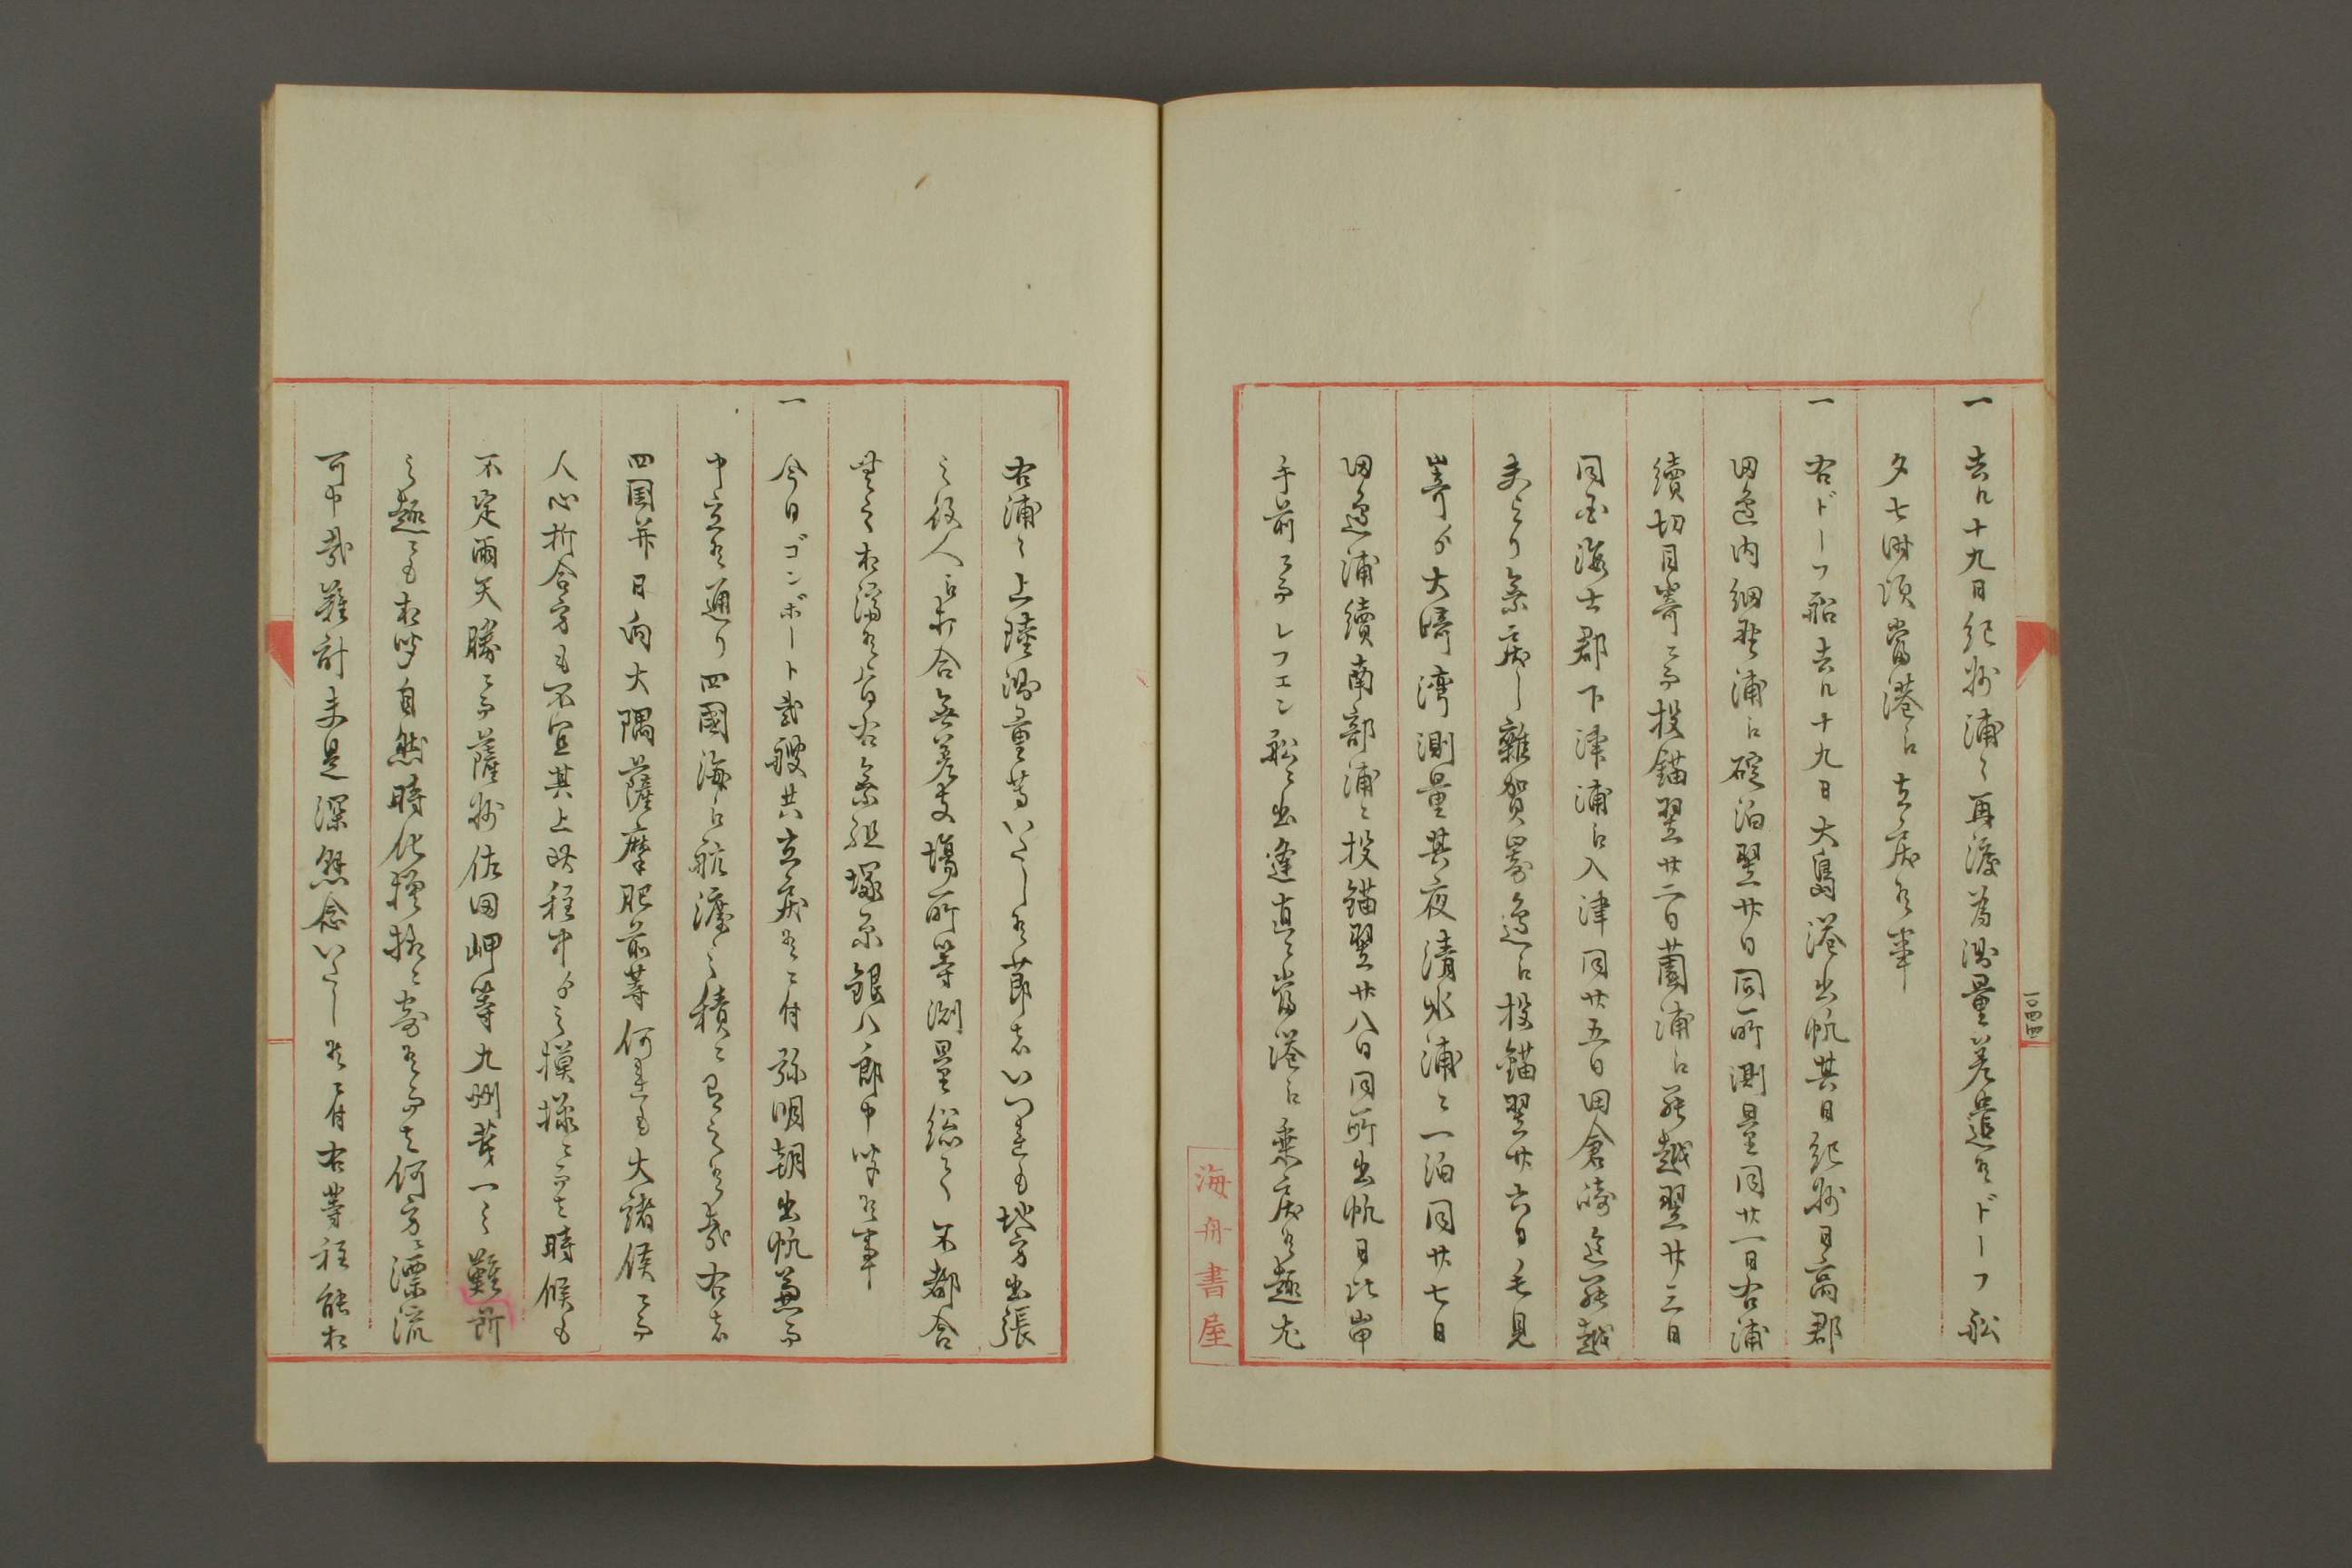 一 去ル十九日紀州浦々再渡為測量差遣候ドーフ船
夕七時頃當港ニ立戻候事
一 右ドーフ船去ル十九日大島港出帆其日紀州日高郡
田邉内細野浦ニ碇泊翌廿日同所測量同廿一日右浦
續切目嵜ニ而投錨翌廿二日薗浦ニ罷越翌廿三日
同国海士郡下津浦ニ入津同廿五日田倉崎迄罷越
夫より乗戻し雜賀嵜邉ニ投錨翌廿六日毛見
嵜が大﨑湾測量其夜清水浦ニ一泊同廿七日
田邉浦續南部浦ニ投錨翌廿八日同所出帆日比岬
手前ニ而レフエン船ニ出逢直ニ當港ニ乗戻候趣尤
海舟書屋
一〇四四
右浦々上陸測量等いたし候節者いつれも地方出張
之役人ニ打合無差支場所等測量総而不都合
無之相濟候旨右乗組塚原銀八郎申聞候事
一 今日ゴンボート貳艘共立戻候ニ付弥明朝出帆兼而
申立候通り四國海ニ航渡之積ニ有之候處右者
四国并日向大隅薩摩肥前等何れも大諸侯ニ而
人心折合方も不宜其上此程中之模様ニ而者時候も
不定雨天勝ニ而薩州佐田岬等九州第一之難所
之趣ニも相聞自然時化模様ニ寄候而者何方ニ漂流
可申哉難計夫是深懸念いたし候ニ付右等程能相